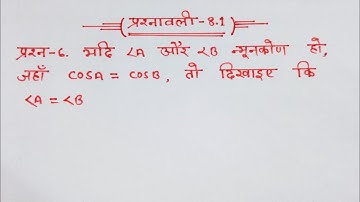 प्रश्नावली-8.1
प्रश्न-6. यदि <A और <B न्यूनकोण हो,
जहाँ COSA = COSB, तो दिखाइए कि
<A = <B